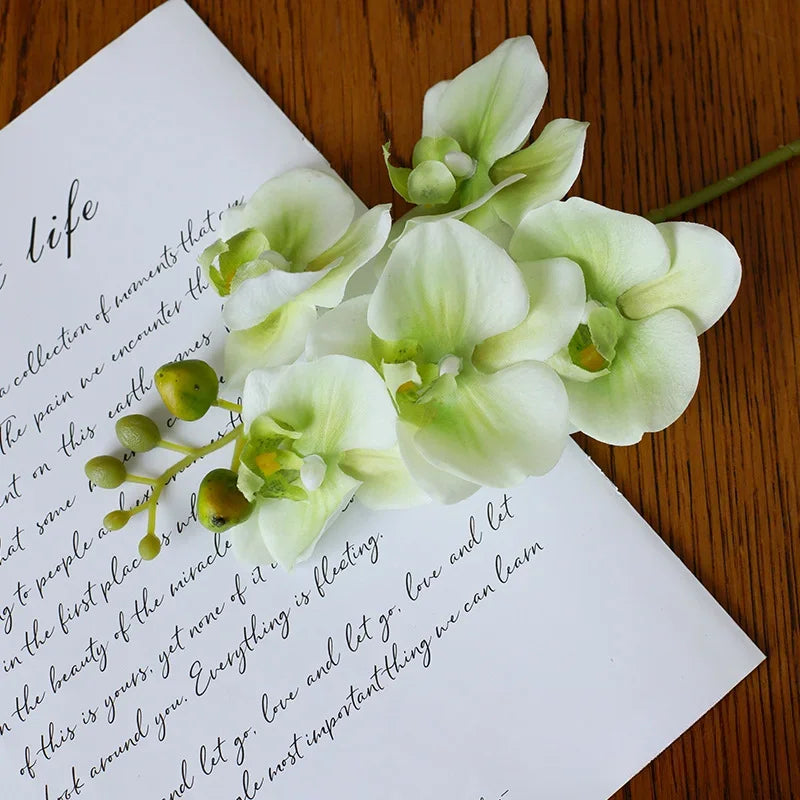 life
a collection of moments that
The pain we encounter th
nt on this earth comes
hat some mom
g to people and
in the first place is wh
n the beauty of the miracle
of this is yours, yet none of it i
ook around you. Everything is fleeting.
and let go, love and let go, love and let
e most important thing we can learn